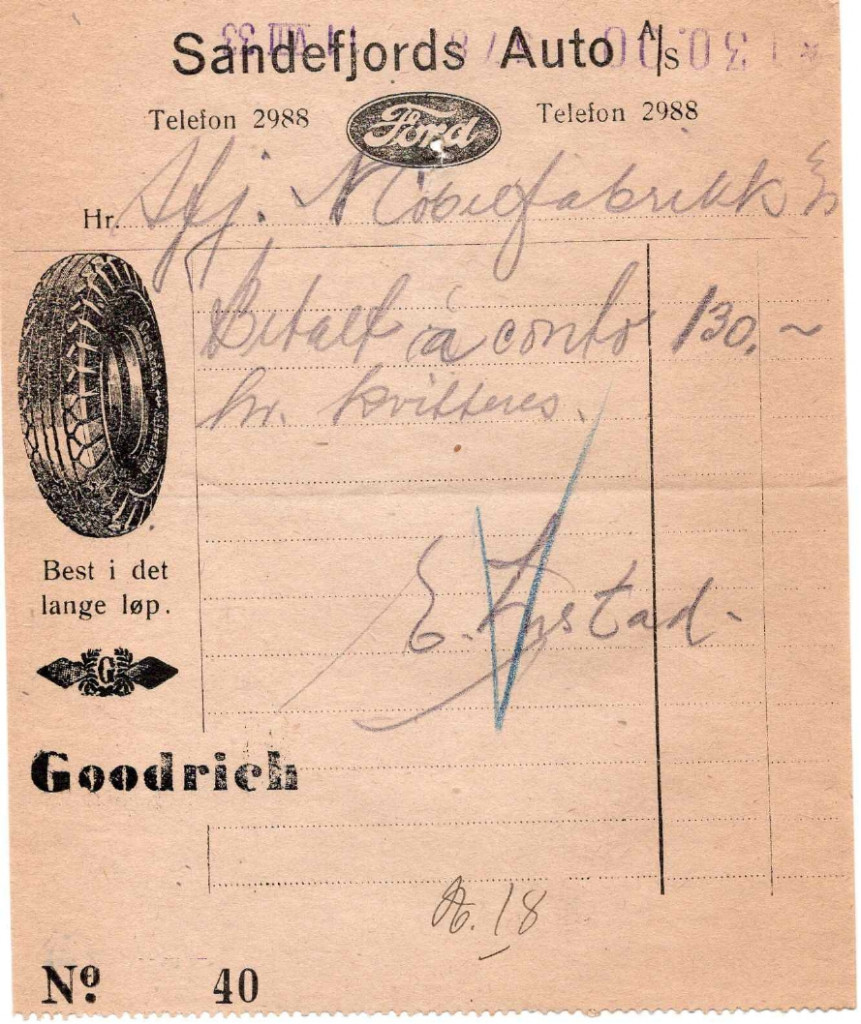 Sandefjords Auto A/S
Telefon 2988
Ford
Telefon 2988
Hr. Sfj. Møbelfabrikk
Betalt á conto 130,~
kvitteres.
E. Lystad-
Best i det
lange løp.
G
Goodrich
18
Nº. 40